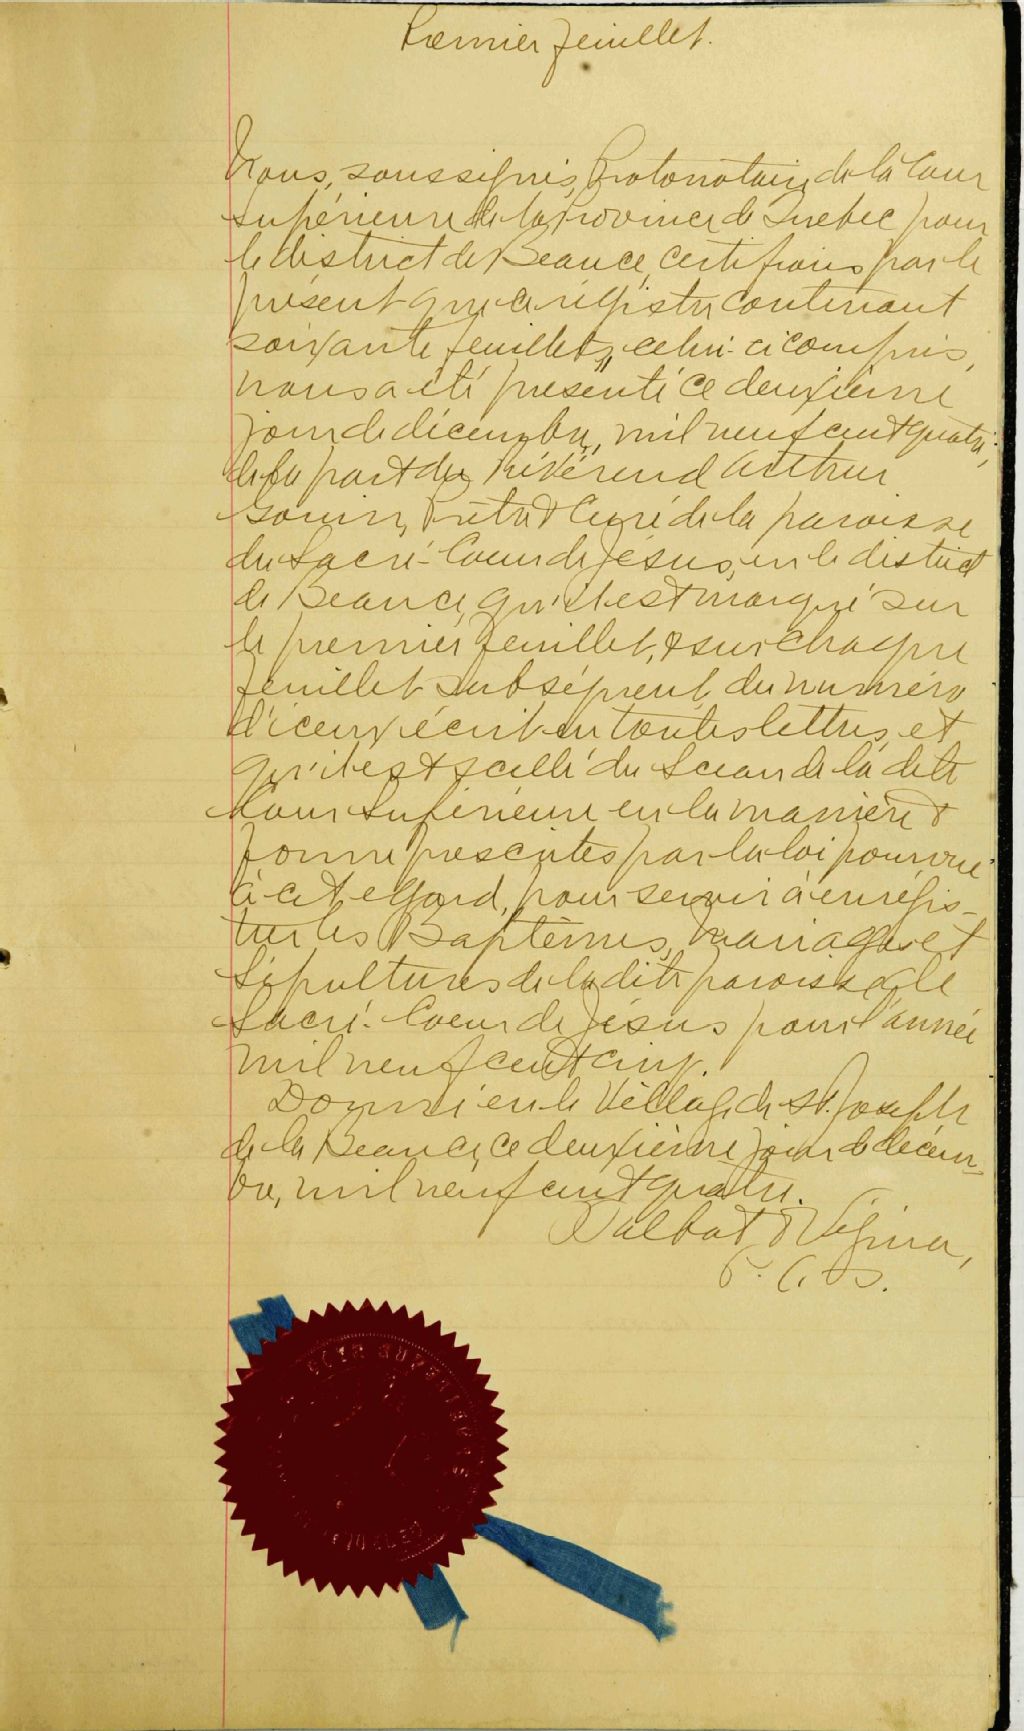 Premier feuillet.
Nous, soussignés, Protonotaire de la Cour
Supérieure de la Province de Québec pour
le district de Beauce, certifions par le
présent que ce régistre contenant
soixante feuillets, celui-ci compris,
nous a été présenté ce deuxième
jour de décembre, mil neuf cent quatre,
de la part du Révérend Arthur
Prêtre & Curé de la paroisse
du Sacré-Coeur de Jésus, en le district
de Beauce, qu'il est marqué sur
le premier feuillet, & sur chaque
feuillet subséquent, du numéro
d'iceux écrit en toutes lettres, et
qu'il est scellé du Sceau de la dite
Cour Supérieure en la manière &
forme prescrites par la loi pourvue
à cet égard, pour servir à enrégis-
trer les Baptêmes, Mariages et
Sépultures de la dite paroisse de
Sacré-Coeur de Jésus pour l'année
mil neuf cent cinq.
Donné en le Village de St. Joseph
de la Beauce, ce deuxième jour de décem-
bre, mil neuf cent quatre.
Talbot & Vézina,
P. C. S.